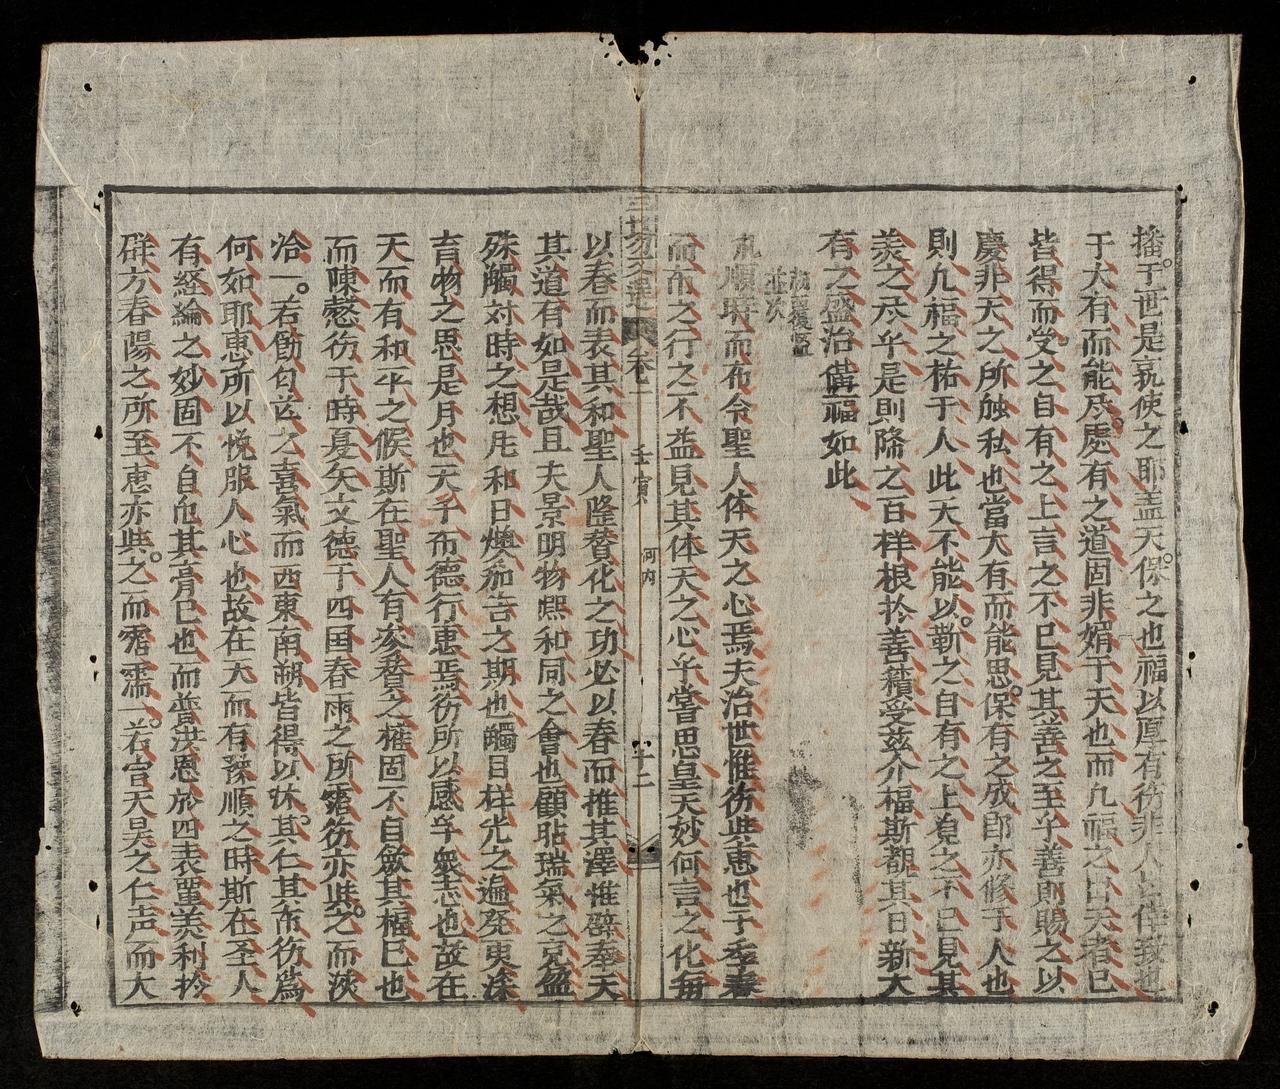 播于世是孰使之耶盖天保之也福以厚有彷非人
于大有而能尽處有之道固非媚于天也而凡福之由天者已
皆得而受之自有之上言之不已見其善之至乎善則賜之以
慶非天之所触私也當大有而能思保有之成即亦修于人也
則凢福之祐于人此天不能以靳之自有之上覓之不已見其
羙之尽乎是則降之百样根扵善積受兹介福斯観其日新大
有之盛治備福如此
並次
順時而布令聖人体天之心焉夫治世惟彷與恵也于季春
而布之行之不益見其体天之心乎嘗思皇天妙何言之化毎
三塲文選 卷一 壬寅 河内 十二
以春而表其和聖人隆賛化之功必以春而推其澤惟辟奉天
其道有如是哉且夫景明物熈和同之會也顧貼瑞氣之克盈
殊觸対時之想凮和日燠茄吉之期也觸目祥光之遍発更深
育物之思是月也天子布德行恵焉彷所以感乎衆志也故在
天而有和平之候斯在聖人有參賛之權固不自斂其福巳也
而陳懿彷于時夏矢文德于四囯春雨之所霑彷亦與之而浹
洽一若勚匀芒之喜氣而西東南朔皆得以沐其仁其布彷為
何如耶恵所以悅服人心也故在天而有豫順之時斯在圣人
有経綸之妙固不自屯其膏巳也而普洪恩於四表亶羙利扵
群方春陽之所至恵亦與之而霑濡一若宣天昊之仁声而大